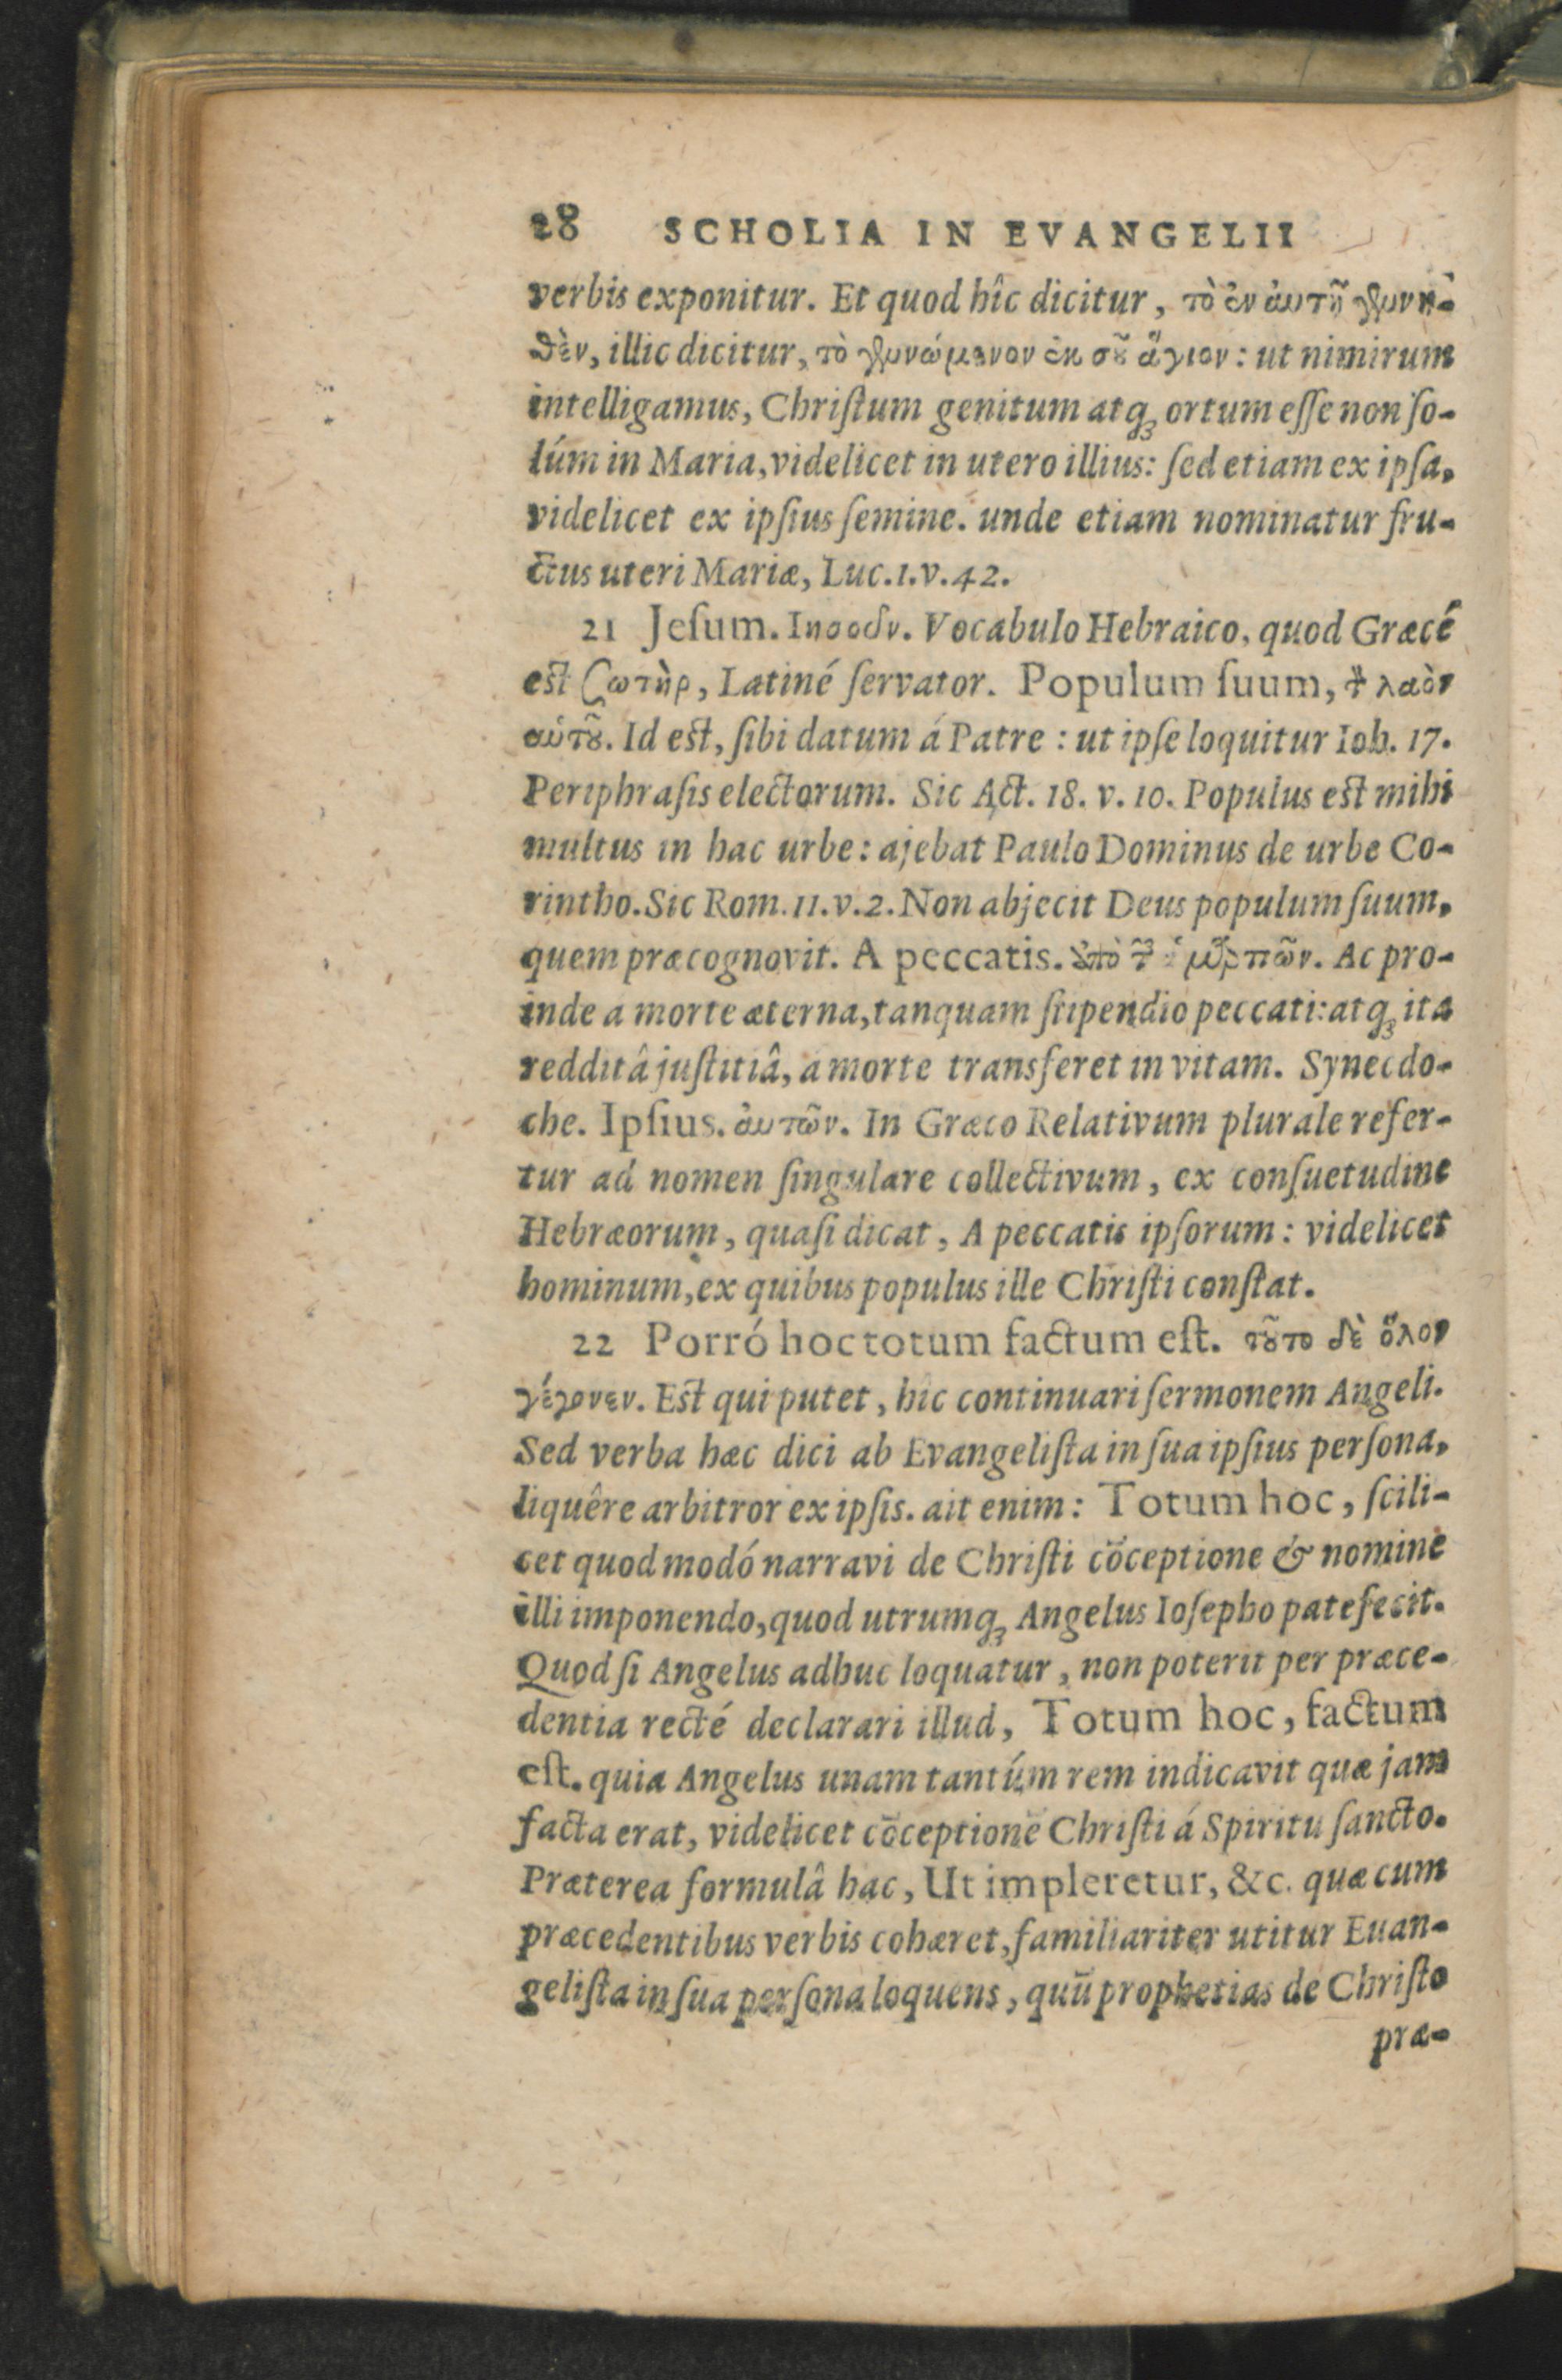 28 SCHOLIA IN EVANGELII
verbis exponitur. Et quod hîc dicitur, τὸ ἐν ἀυτῇ γεννη-
θὲν, illic dicitur, τὸ γεννώμενον ἐκ σοῦ ἅγιον: ut nimirum
intelligamus, Chriſtum genitum atq; ortum eſſe non ſo-
lúm in Maria, videlicet in utero illius: ſed etiam ex ipſa,
videlicet ex ipſius ſemine. unde etiam nominatur fru-
ctus uteri Mariæ, Luc.1.v.42.
21 Jeſum. Ιησοῦν. Vocabulo Hebraico, quod Græcé
est ζωτὴρ, Latiné ſervator. Populum ſuum, τὸν λαὸν
αὑτοῦ. Id est, ſibi datum á Patre: ut ipſe loquitur Ioh. 17.
Periphraſis electorum. Sic Act. 18. v. 10. Populus est mihi
multus in hac urbe: ajebat Paulo Dominus de urbe Co-
rintho. Sic Rom. 11. v. 2. Non abjecit Deus populum ſuum,
quem præcognovit. A peccatis. ἀπὸ τῶν ἁμαρτιῶν. Ac pro-
inde a morte æterna, tanquam ſtipendio peccati: atq; ita
redditâ juſtitiâ, a morte transferet in vitam. Synecdo-
che. Ipſius. ἀυτῶν. In Græco Relativum plurale refer-
tur ad nomen ſingulare collectivum, ex conſuetudine
Hebræorum, quaſi dicat, A peccatis ipſorum: videlicet
hominum, ex quibus populus ille Chriſti conſtat.
22 Porró hoc totum factum eſt. τοῦτο δὲ ὅλον
γέγονεν. Est qui putet, hîc continuari ſermonem Angeli.
Sed verba hæc dici ab Evangeliſta in ſua ipſius perſona,
liquêre arbitror ex ipſis. ait enim: Totum hoc, ſcili-
cet quod modó narravi de Chriſti cōceptione & nomine
illi imponendo, quod utrumq; Angelus Ioſepho patefecit.
Quod ſi Angelus adhuc loquatur, non poterit per præce-
dentia recté declarari illud, Totum hoc, factum
eſt. quia Angelus unam tantúm rem indicavit quæ jam
facta erat, videlicet cōceptionē Chriſti á Spiritu ſancto.
Præterea formulâ hac, Ut impleretur, &c. quæ cum
præcedentibus verbis cohæret, familiariter utitur Euan-
geliſta in ſua perſona loquens, quū prophetias de Chriſto
præ-